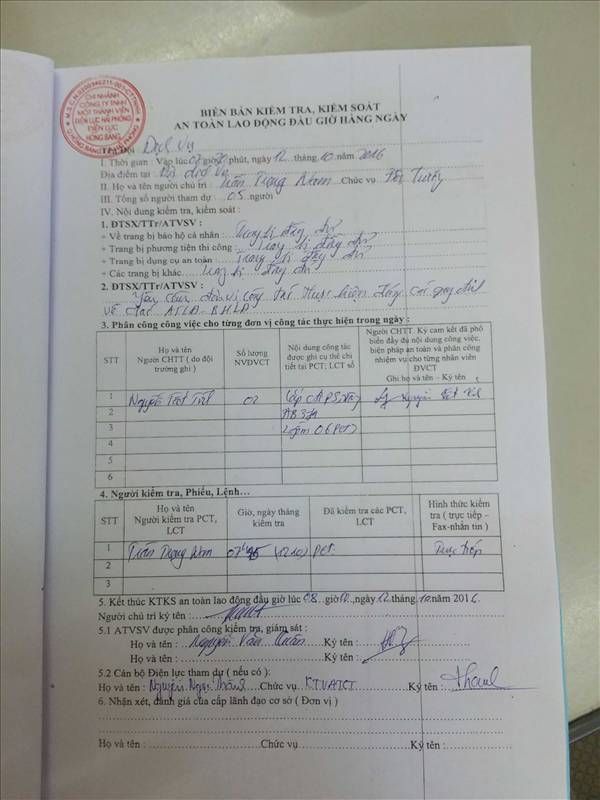 M.S.C.N:0200340211-001-C.T.TNHH
CHI NHÁNH
CÔNG TY TNHH
MỘT THÀNH VIÊN
ĐIỆN LỰC HẢI PHÒNG
ĐIỆN LỰC
HỒNG BÀNG
BIÊN BẢN KIỂM TRA, KIỂM SOÁT
AN TOÀN LAO ĐỘNG ĐẦU GIỜ HÀNG NGÀY
Dịch vụ
I. Thời gian : Vào lúc 07 giờ 30 phút, ngày 12 tháng 10 năm 2016
Địa điểm tại Đội dịch vụ
II. Họ và tên người chủ trì : Trần Trọng Nam Chức vụ Đội Trưởng
III. Tổng số người tham dự : 05 người
IV. Nội dung kiểm tra, kiểm soát :
1. ĐTSX/TTr/ATVSV :
+ Về trang bị bảo hộ cá nhân : Trang bị đầy đủ
+ Trang bị phương tiện thi công : Trang bị đầy đủ
+ Trang bị dụng cụ an toàn : Trang bị đầy đủ
+ Các trang bị khác. Trang bị đầy đủ
2. ĐTSX/TTr/ATVSV :
Yêu cầu đơn vị công tác thực hiện đúng các quy định
về ATLĐ-BHLĐ
3. Phân công công việc cho từng đơn vị công tác thực hiện trong ngày :
STT
Họ và tên
Người CHTT ( do đội
trưởng ghi )
Số lượng
NVĐVCT
Nội dung công tác
được ghi cụ thể chi
tiết tại PCT; LCT số
Người CHTT. Ký cam kết đã phổ
biến đầy đủ nội dung công việc,
biện pháp an toàn và phân công
nhiệm vụ cho từng nhân viên
ĐVCT
Ghi họ và tên – Ký tên
1 Nguyễn 02 Nguyễn
2
3 06 PCT)
4
5
6
4. Người kiểm tra, Phiếu, Lệnh…
STT
Họ và tên
Người kiểm tra PCT,
LCT
Giờ, ngày tháng
kiểm tra
Đã kiểm tra các PCT,
LCT
Hình thức kiểm
tra ( trực tiếp –
Fax-nhắn tin )
1 Trần Trọng Nam PCT Trực tiếp
2
3
5. Kết thúc KTKS an toàn lao động đầu giờ lúc 08 giờ 10, ngày 12 tháng 10 năm 2016
Người chủ trì ký tên :
5.1 ATVSV được phân công kiểm tra, giám sát :
Họ và tên : Nguyễn Văn Ký tên :
Họ và tên : Ký tên :
5.2 Cán bộ Điện lực tham dự ( nếu có ):
Họ và tên : Nguyễn Ngọc Chức vụ KTVATCT Ký tên :
6. Nhận xét, đánh giá của cấp lãnh đạo cơ sở ( Đơn vị )
Họ và tên : Chức vụ Ký tên :